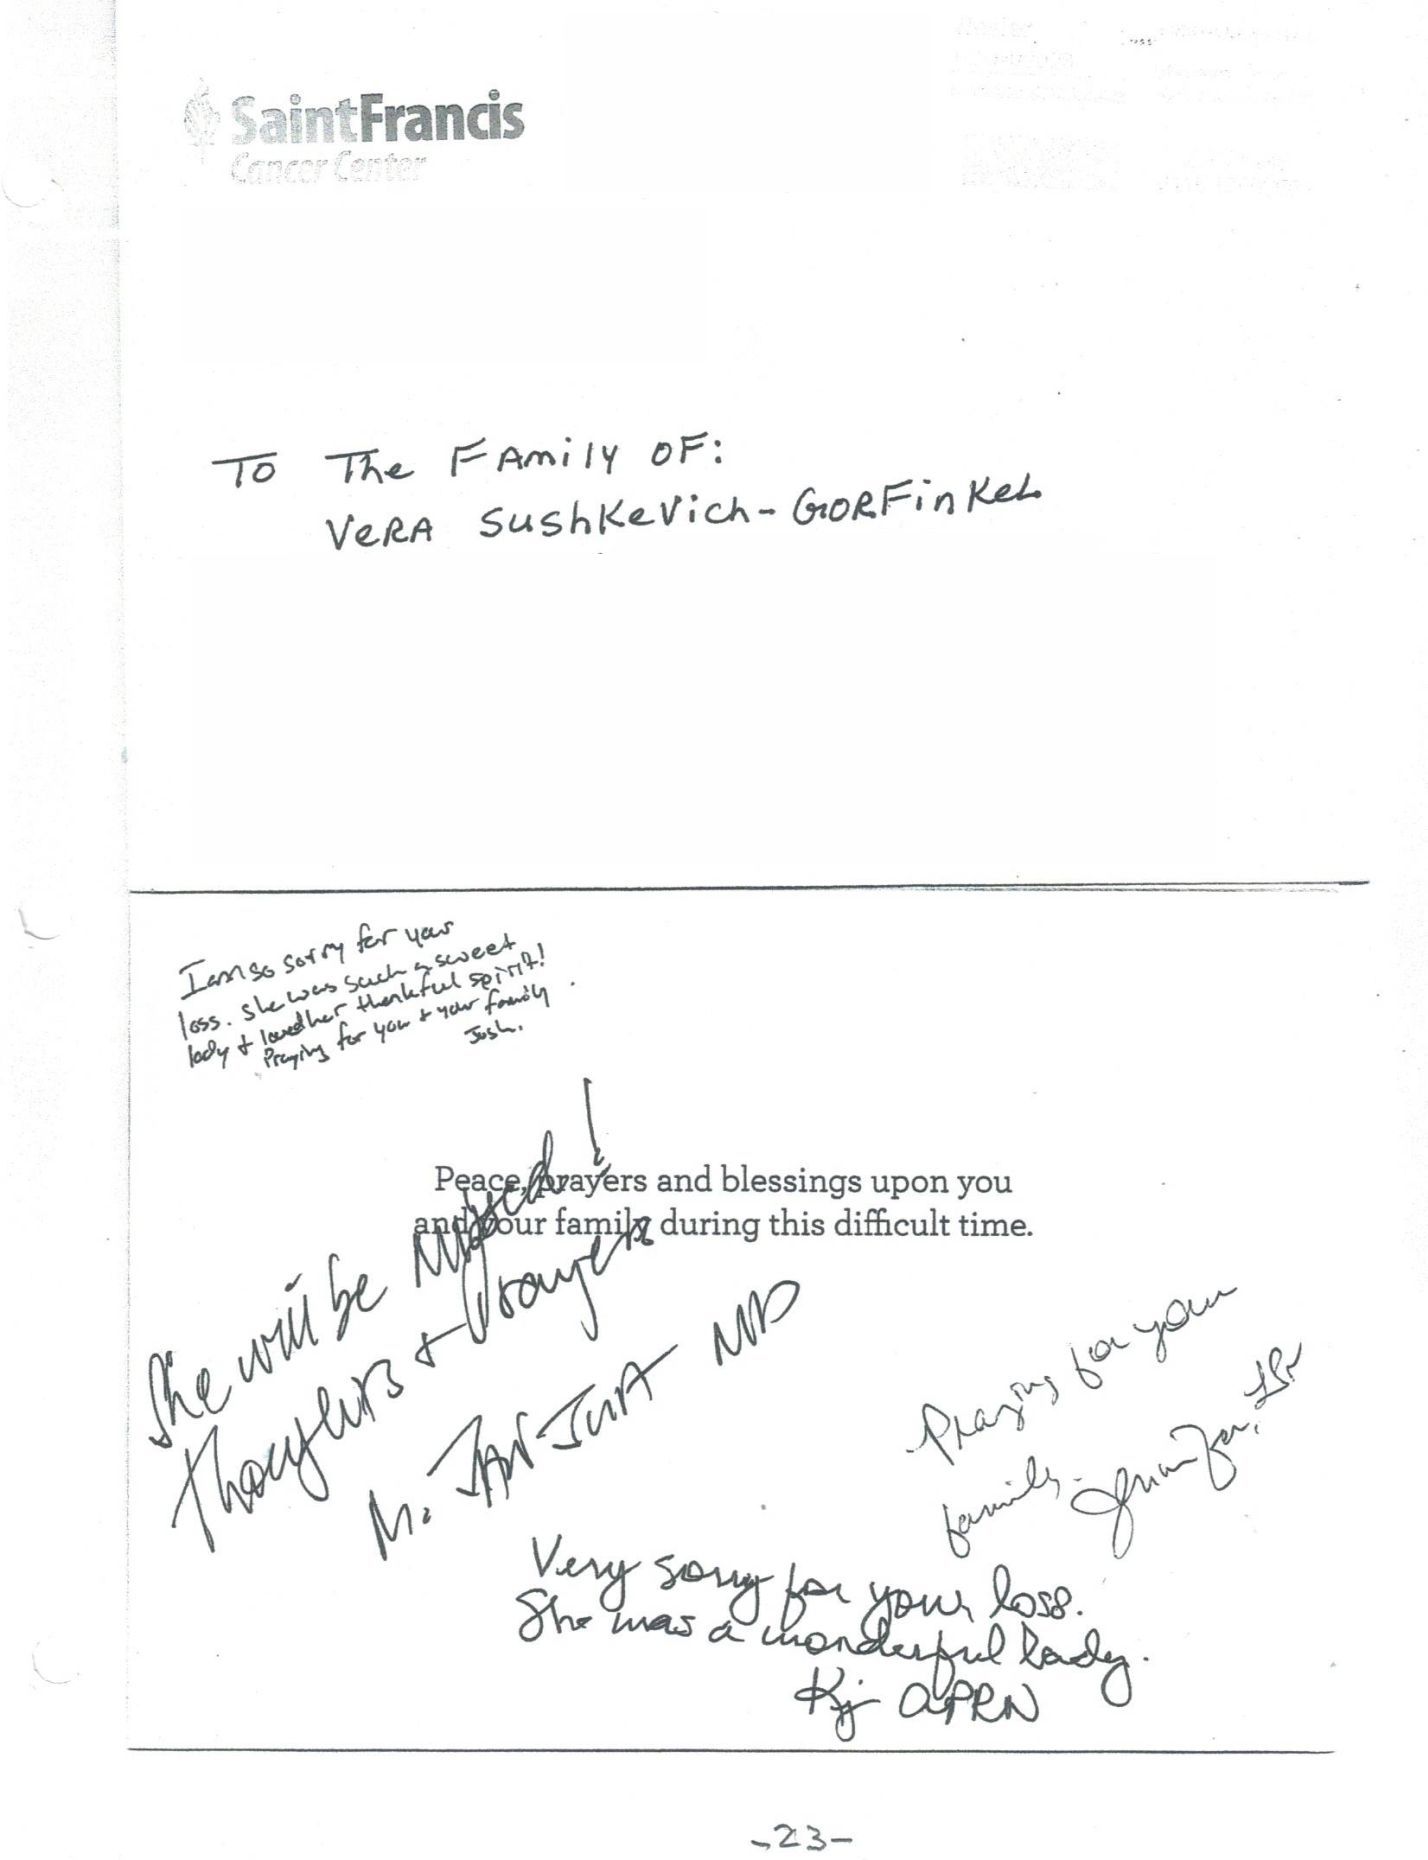 SaintFrancis
Cancer Center
TO The FAmily OF:
VeRA SushKeVich-GORFinKeL
I am so sorry for your
loss. She was such a sweet
lady + loved her thankful spirit!
Praying for you + your family
Josh.
Peace, prayers and blessings upon you
and your family during this difficult time.
She will be missed!
Thoughts + Prayers
M. JANJUA MD
Praying for your
family.
Very sorry for your loss.
She was a wonderful lady.
Kj APRN
-23-